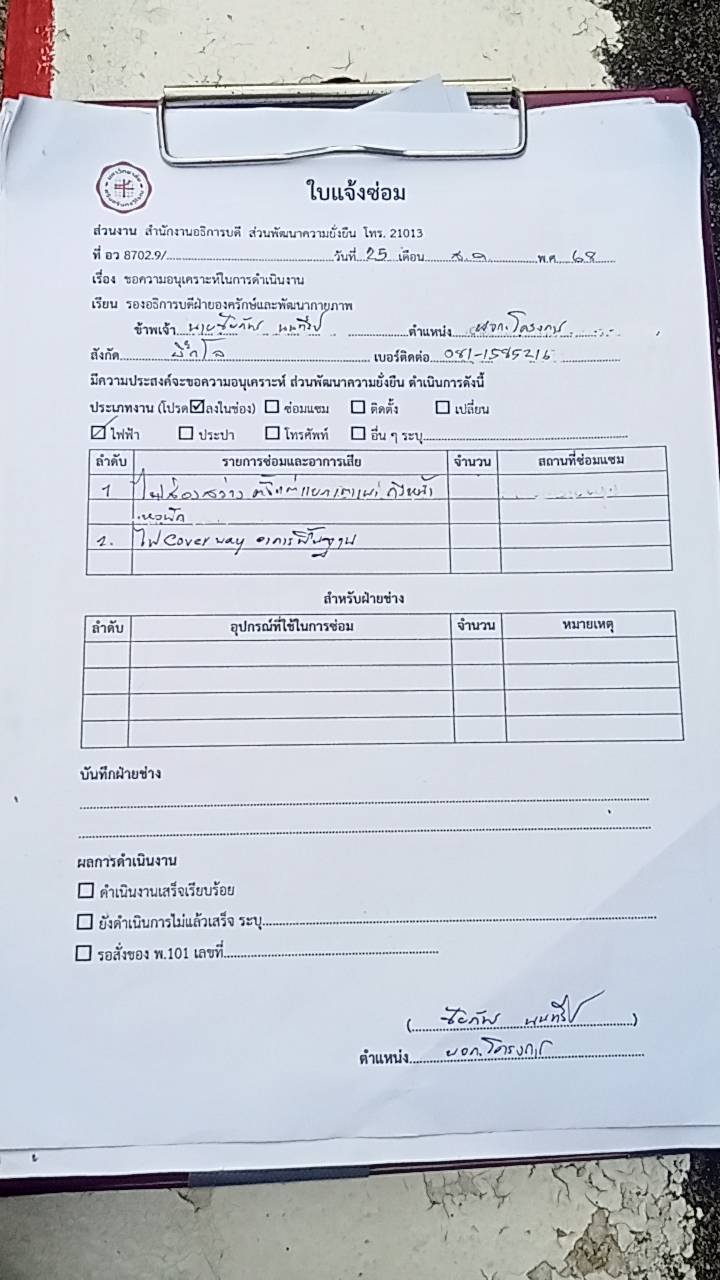 ใบแจ้งซ่อม
ส่วนงาน สำนักงานอธิการบดี ส่วนพัฒนาความยั่งยืน โทร. 21013
ที่ อว 8702.9/ วันที่ 25 เดือน ส.ค พ.ศ. 68
เรื่อง ขอความอนุเคราะห์ในการดำเนินงาน
เรียน รองอธิการบดีฝ่ายองครักษ์และพัฒนากายภาพ
ข้าพเจ้า นาย ตำแหน่ง ผอก.โครงการ
สังกัด เบอร์ติดต่อ 081-1585216
มีความประสงค์จะขอความอนุเคราะห์ ส่วนพัฒนาความยั่งยืน ดำเนินการดังนี้
ประเภทงาน (โปรด☑ลงในช่อง) ☐ ซ่อมแซม ☐ ติดตั้ง ☐ เปลี่ยน
☑ ไฟฟ้า ☐ ประปา ☐ โทรศัพท์ ☐ อื่น ๆ ระบุ
ลำดับ รายการซ่อมและอาการเสีย จำนวน สถานที่ซ่อมแซม
1 ไฟส่องสว่าง ตั้งแต่แยก ถึงหน้า
หอพัก
2. ไฟ cover way อาคาร
สำหรับฝ่ายช่าง
ลำดับ อุปกรณ์ที่ใช้ในการซ่อม จำนวน หมายเหตุ
บันทึกฝ่ายช่าง
ผลการดำเนินงาน
☐ ดำเนินงานเสร็จเรียบร้อย
☐ ยังดำเนินการไม่แล้วเสร็จ ระบุ
☐ รอสั่งของ พ.101 เลขที่
ตำแหน่ง ผอก.โครงการ